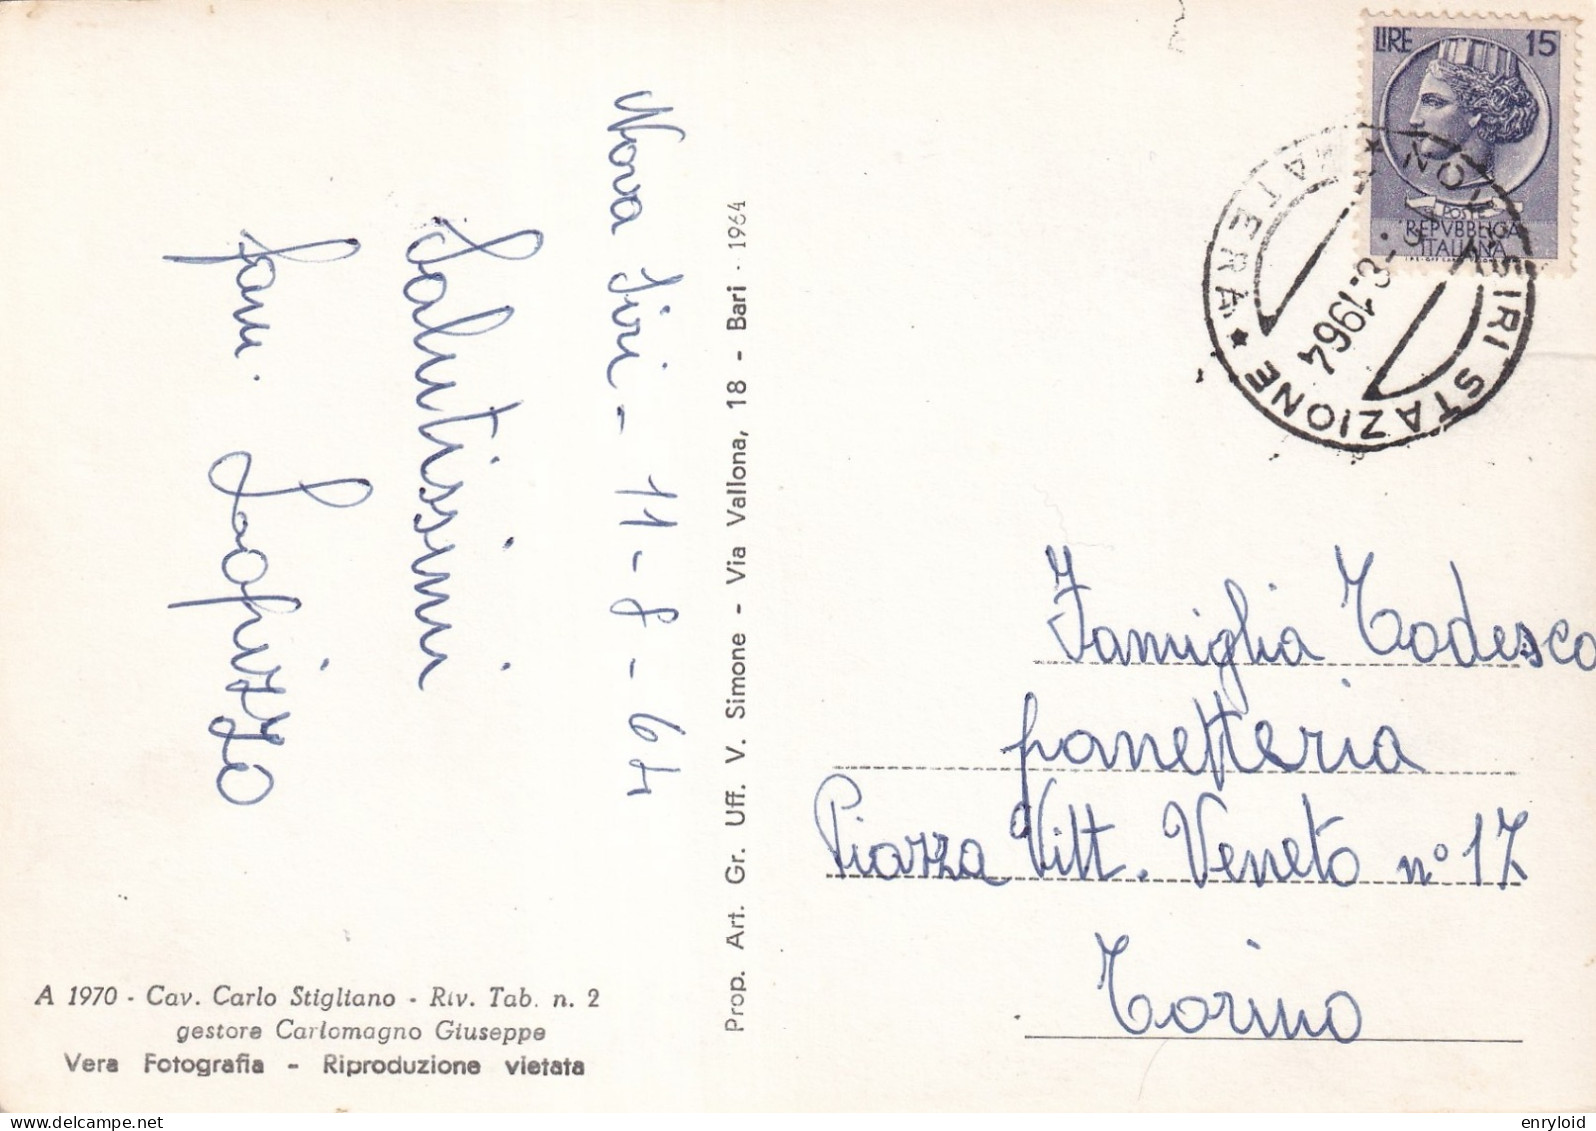 Nova Siri - 11-8-64
Salutissimi
fam. Lopizzo
A 1970 - Cav. Carlo Stigliano - Riv. Tab. n. 2
gestore Carlomagno Giuseppe
Vera Fotografia - Riproduzione vietata
Prop. Art. Gr. Uff. V. Simone - Via Vallona, 18 - Bari - 1964
LIRE 15
POSTE
REPVBBLICA
ITALIANA
NOVA SIRI STAZIONE ★ MATERA ★
-8-1964
Famiglia Todesco
panetteria
Piazza Vitt. Veneto n° 17
Torino
enryloid